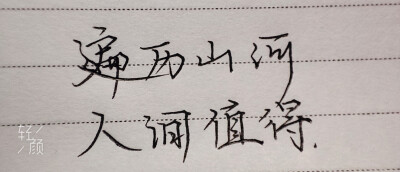 遍历山河
人间值得.
轻颜